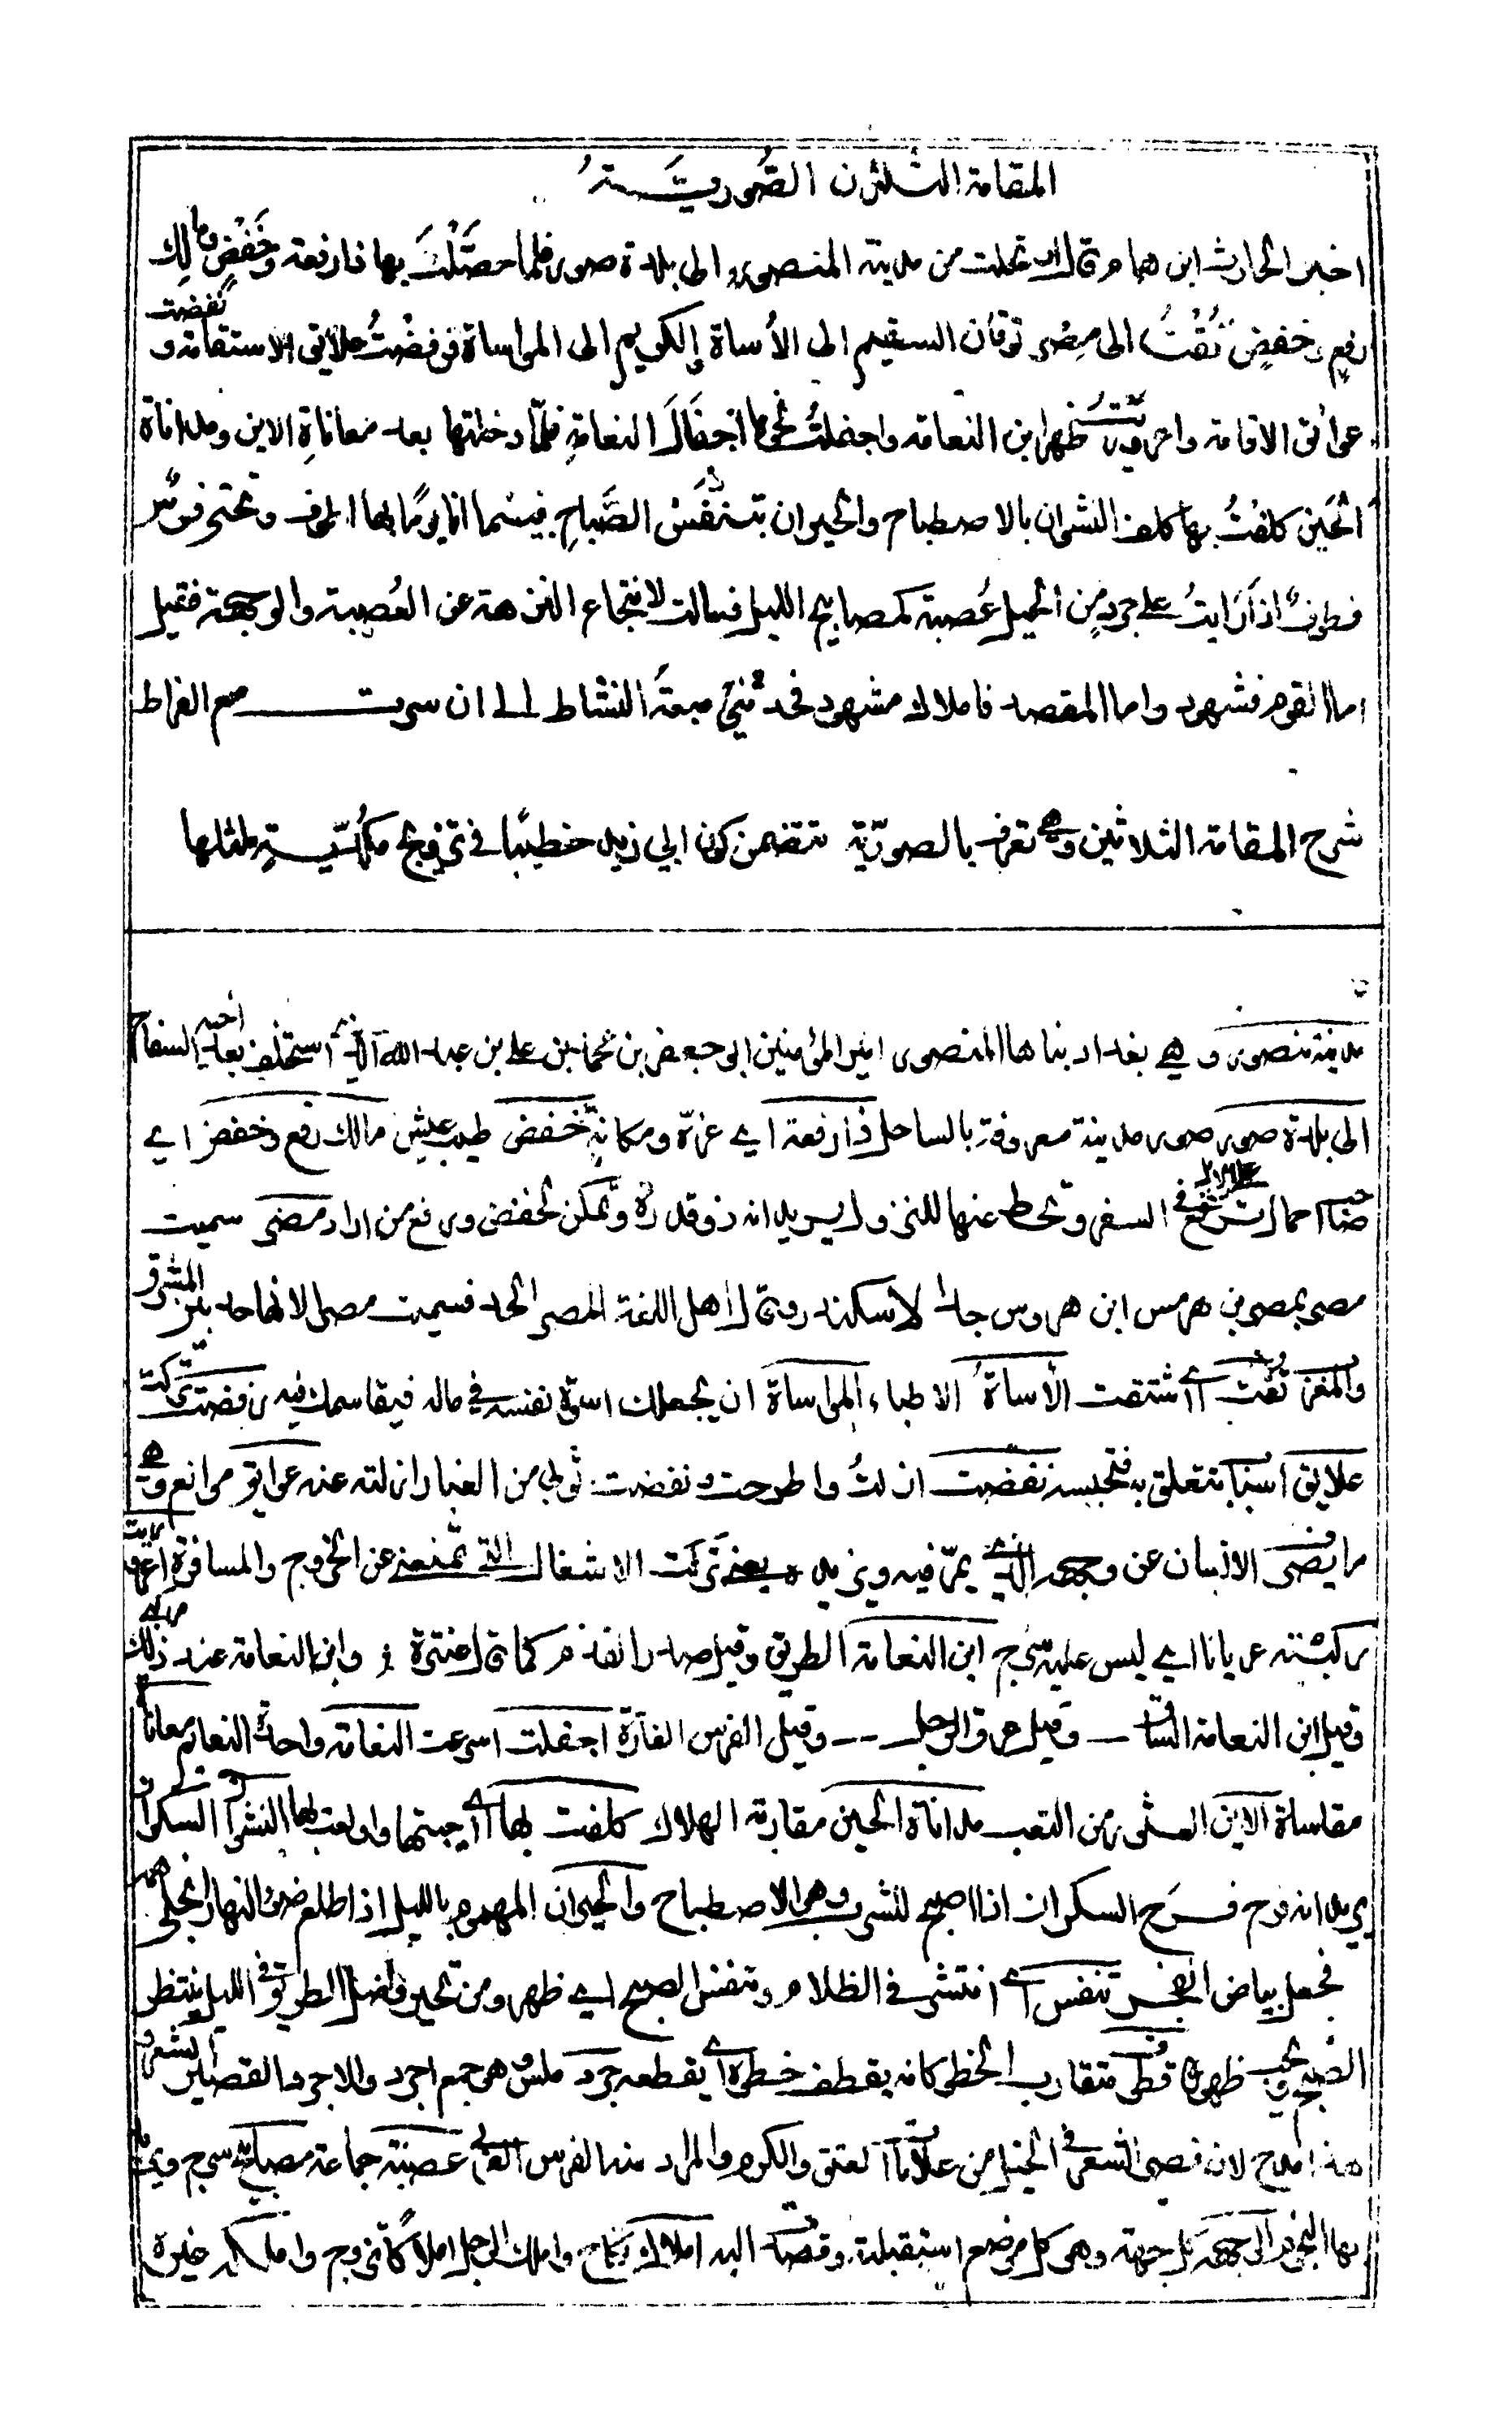 المقامة الثلثون الصُّوريَّةُ
اخبر الحارث ابن همام قال ارتحلت من مدينة المنصور الى بلدة صور فلما حصَّلْتُ بها ذا رفعة وخَفْضٍ ومالك
رفعٍ وخفضٍ تُقْتُ الى مِصْر توقان السقيم الى الأساة والكريم الى المواساة فرفضْتُ علائق الاستقامة ونفضت
عوائق الاقامة واعروريتُ ظهر ابن النعامة واجفلتُ نحوها اجفَالَ النعامةِ فلمّا دخلتها بعد معاناةِ الاين ومداناة
الحَين كلفْتُ بها كلف النشوان بالاصطباح والحيران بتنفّسْ الصَّباحِ فبينما انا يومًا بها اطوف وتحتي فرسٌ
قطوفٌ اذ رَايتُ على جردٍ من الخيل عُصبة كمصابيح الليل فسالت لانتجاع النزهة عن العُصبة والوجهة فقيل
اما القوم فشهود واما المقصد فاملاك مشهود فحدتني ميعَةُ النشاط الى ان سرت مع الفراط
شرح المقامة الثلاثين وهي تعرف بالصوريّة تتضمن كون ابي زيد خطيبًا في تزويج مكُدّيةٍ لمثلها
مدينة منصور وهي بغداد بناها المنصور امير المؤمنين ابو جعفر بن محمد بن علي بن عبد الله الذي استخلف بعد أخيه السفاح
الى بلدة صور صور مدينة معروفة بالساحل ذا رفعة اي عزّة ومكانة خَفض طيب عيش مالك رفع وخفض اي
احمال ترفع في السفر وتحط عنها للنزول يريد انه ذو قدرة وتمكن لخفض ورفع من اراد مصر سميت
مصر بمصر بن هرمس ابن هردوس جد الاسكندر وقال اهل اللغة المصر الحد فسميت مصر لانها حد بين المشرق
والمغرب تُقت اي اشتقت الأساةُ الاطباء المواساة ان يجعلك اسوة نفسه في ماله فيقاسمك فيه رفضت تركت
علايق اسباب تتعلق به فتحبسه نفضت ازلتُ واطرحت ونفضت ثوبي من الغبار ازلته عنه عوايق موانع وهي
ما يصرف الانسان عن وجهه الذي يمرّ فيه ويريده يعني تركت الاشغال التي تمنعني عن الخروج والمسافرة اعروريت
ركبته عريانا اي ليس عليه سرج ابن النعامة الطريق وقيل صدر القدم كما قال عنترة وابن النعامة عند ذلك مركبي
وقيل ابن النعامة الساق وقيل عرق الرجل وقيل الفرس الفارّة اجفلت اسرعت النعامة واحدة النعام معاناة
مقاساة الاين العثور من التعب مداناة الحين مقاربة الهلاك كلفت بها اي احببتها واولعت بها النشوان السكران
يريد انه فرح فرَح السكران اذا اصبح للشرب وهو الاصطباح والحيران المهموم بالليل اذا طلع ضوء النهار انجلى همه
فجعل بياض الفجر تنفس اي انتشر في الظلام وتنفس الصبح اي ظهر ومن تحير وضل الطريق في الليل ينتظر
الصبح ويحب ظهوره قطوف متقارب الخطو كانه يقطف خطوه اي يقطعه جرد ملس وهو جمع اجرد والاجرد القصير الشعر و
هذا مدح لان قصر الشعر في الخيل من علامات العتق والكرم والمراد منه الفرس العربي عصبة جماعة مصابيح سرج
بها النجوم الوجهة كل جهة وهي كل موضع استقبلته وقصدت اليه املاك نكاح واملك الرجل املاكا تزوج واملكه غيره